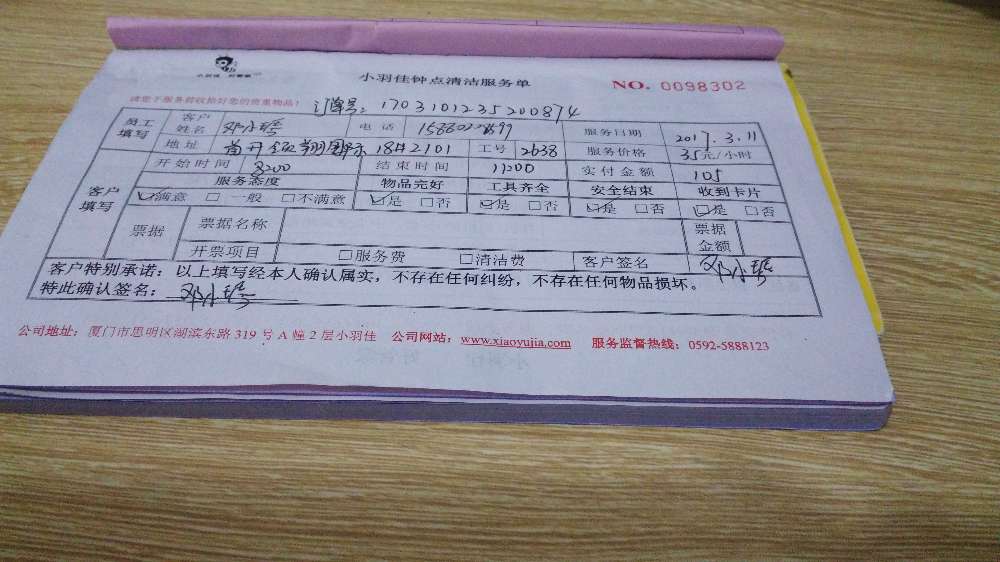 小羽佳钟点清洁服务单 NO. 0098302
订单号：1703101235200874
员工填写 客户姓名 邓小琴 电话 服务日期 2017.3.11
地址 首开领翔国际 18#2101 工号 2638 服务价格 35元/小时
客户填写 开始时间 8:00 结束时间 11:00 实付金额 105
服务态度 物品完好 工具齐全 安全结束 收到卡片
☑满意 □一般 □不满意 ☑是 □否 ☑是 □否 ☑是 □否 ☑是 □否
票据 票据名称 票据金额
开票项目 □服务费 □清洁费 客户签名 邓小琴
客户特别承诺：以上填写经本人确认属实，不存在任何纠纷，不存在任何物品损坏。
特此确认签名：邓小琴
公司地址：厦门市思明区湖滨东路 319 号 A 幢 2 层小羽佳 公司网站：www.xiaoyujia.com 服务监督热线：0592-5888123